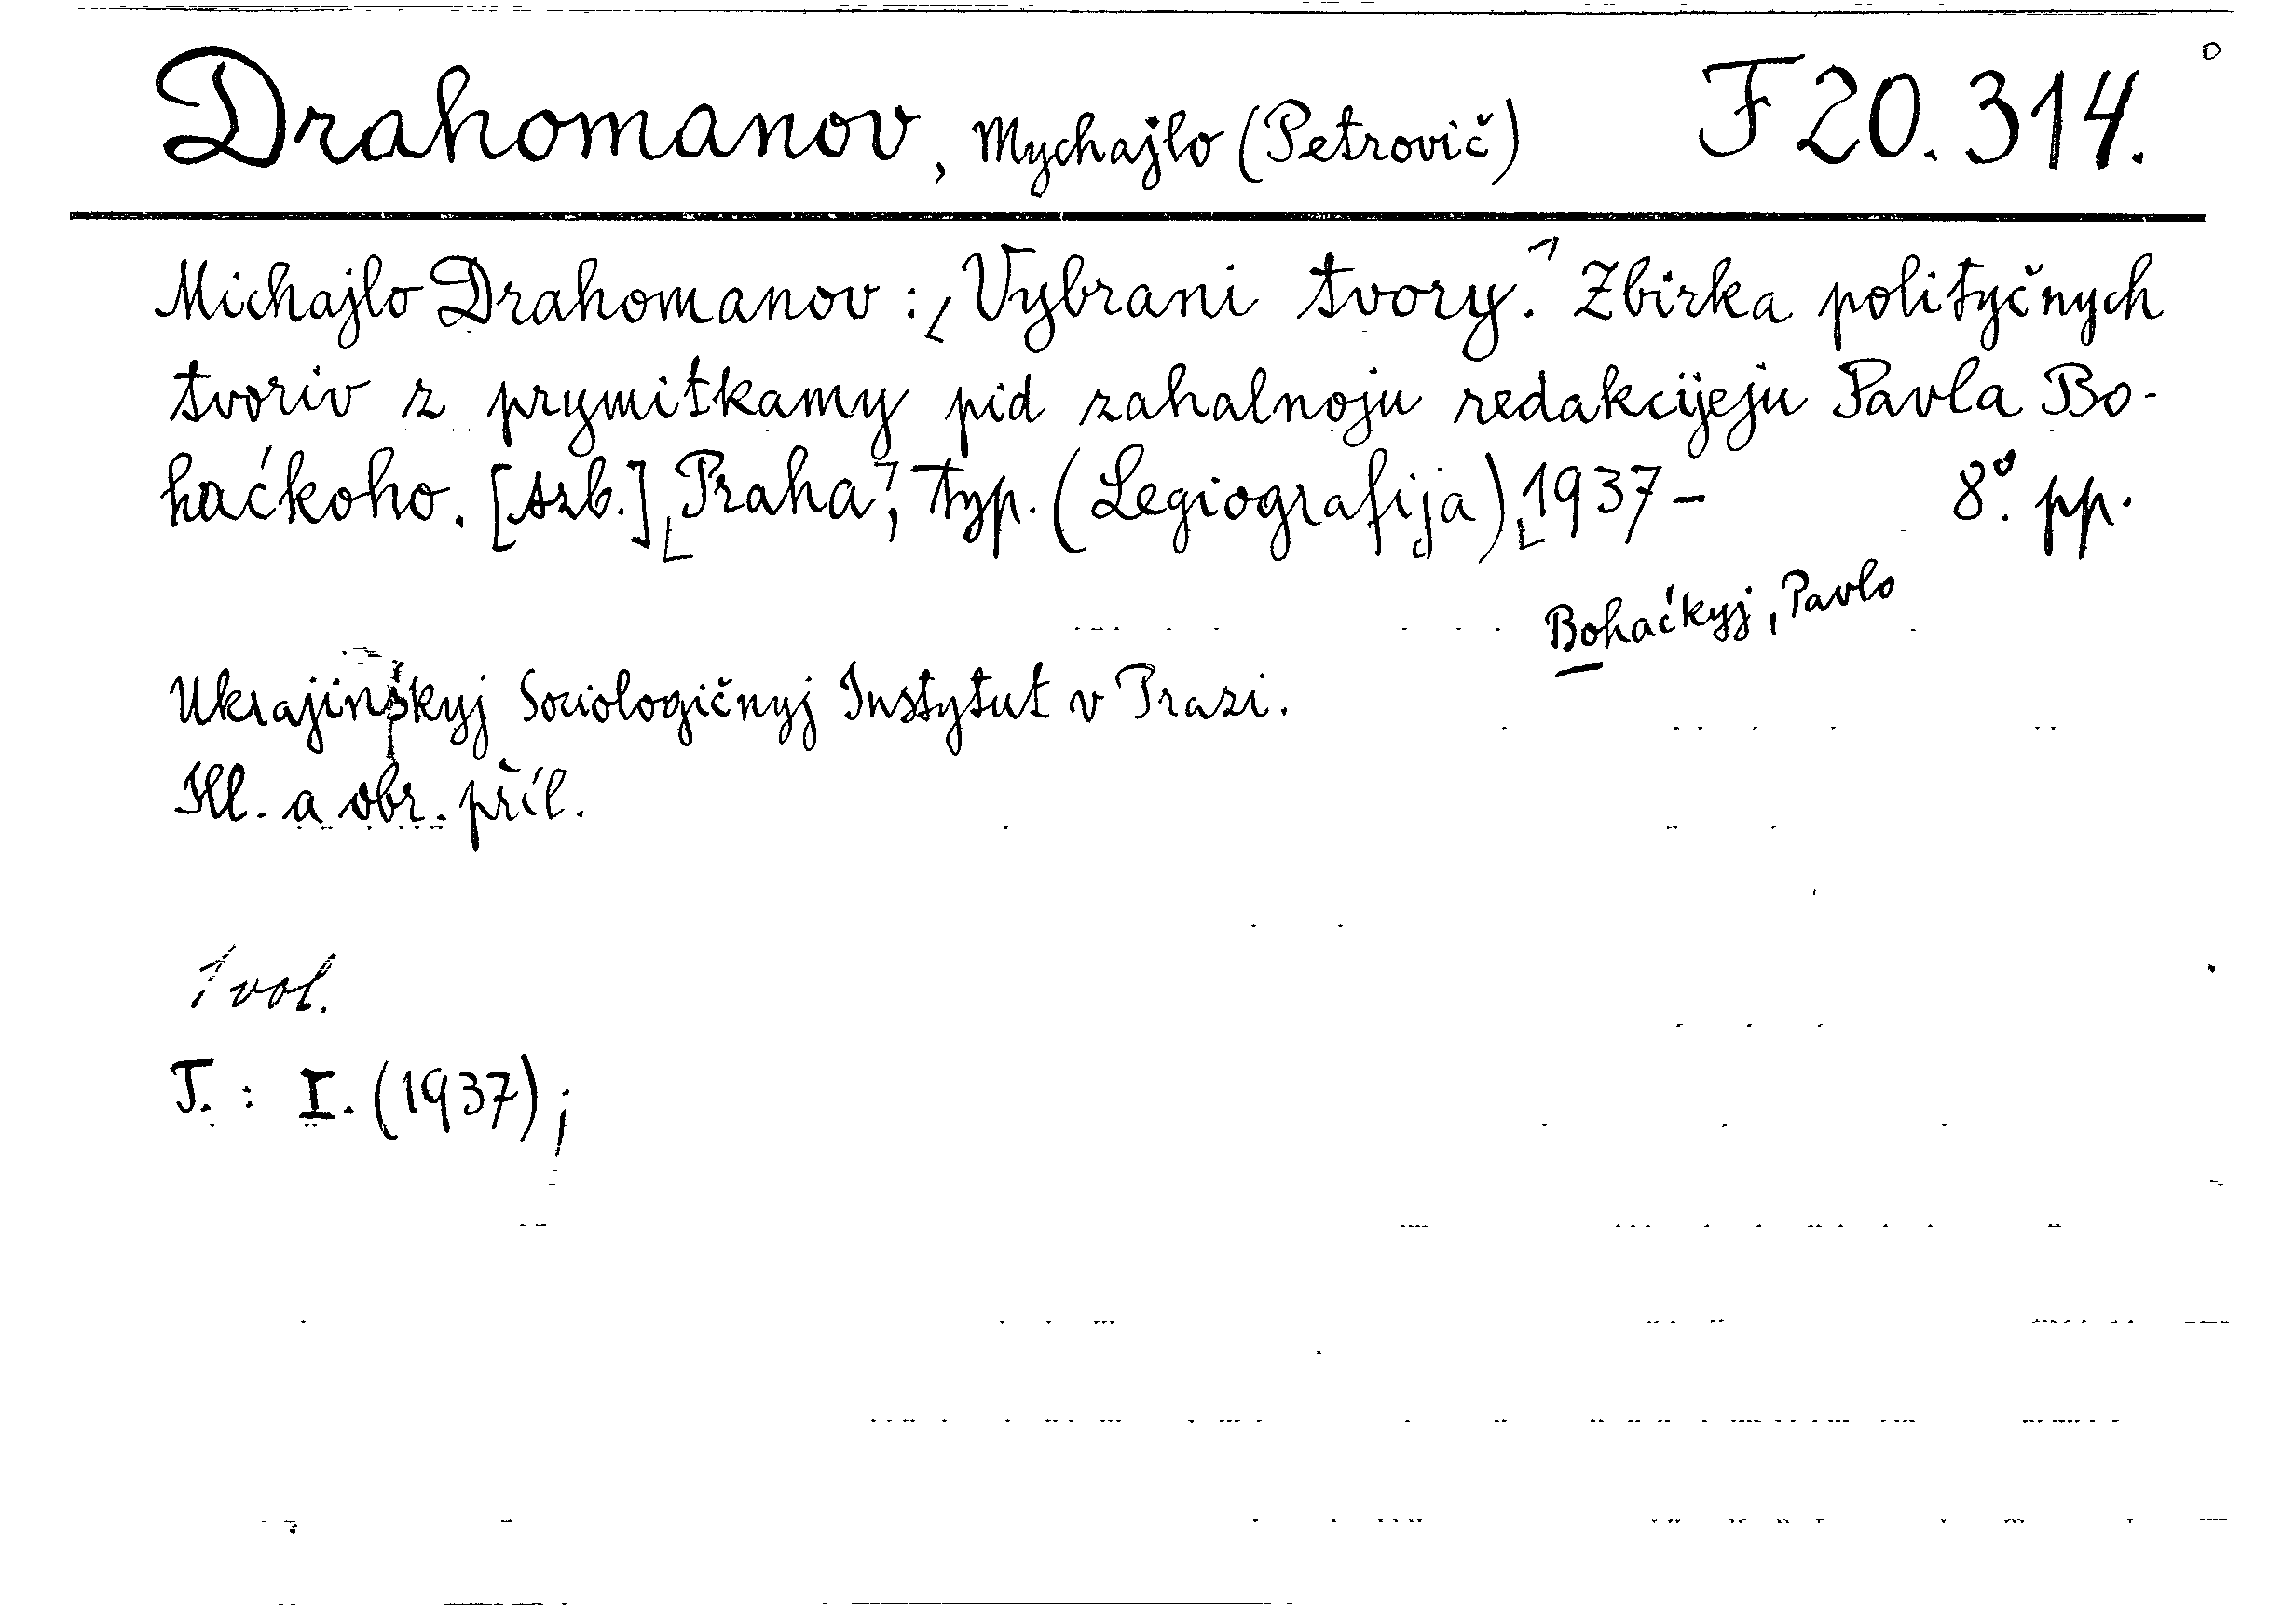 Drahomanov, Mychajlo (Petrovič) F 20.314.
Michajlo Drahomanov: Vybrani tvory. Zbirka polityčnych
tvoriv z prymitkamy pid zahalnoju redakcijeju Pavla Bo-
haćkoho. [Azb.] Praha, Typ. (Legiografija) 1937- 8°. pp.
Bohaćkyj, Pavlo
Ukrajinśkyj Sociologičnyj Instytut v Prazi.
Ill. a obr. příl.
1 vol.
T. : I. (1937);